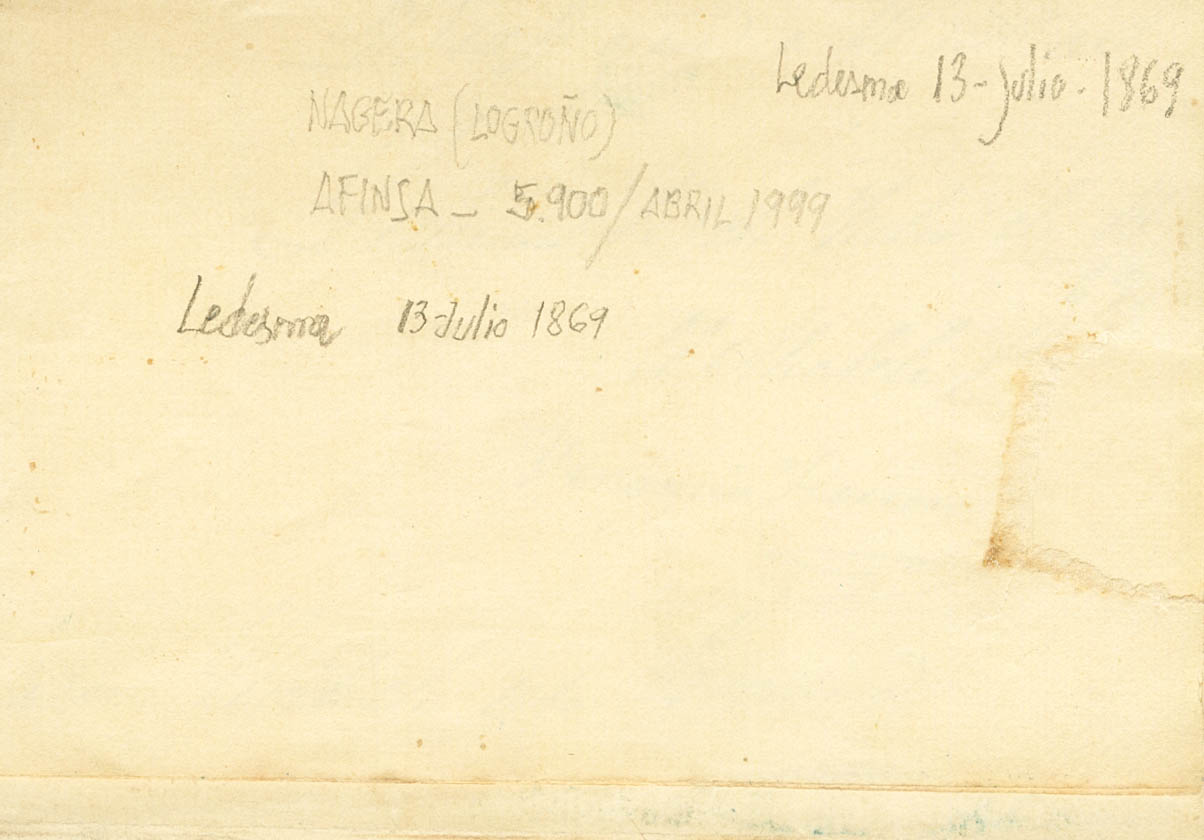 Ledesma 13-Julio-1869
NAGERA (LOGROÑO)
AFINSA - 5.900/ABRIL 1999
Ledesma 13-Julio 1869